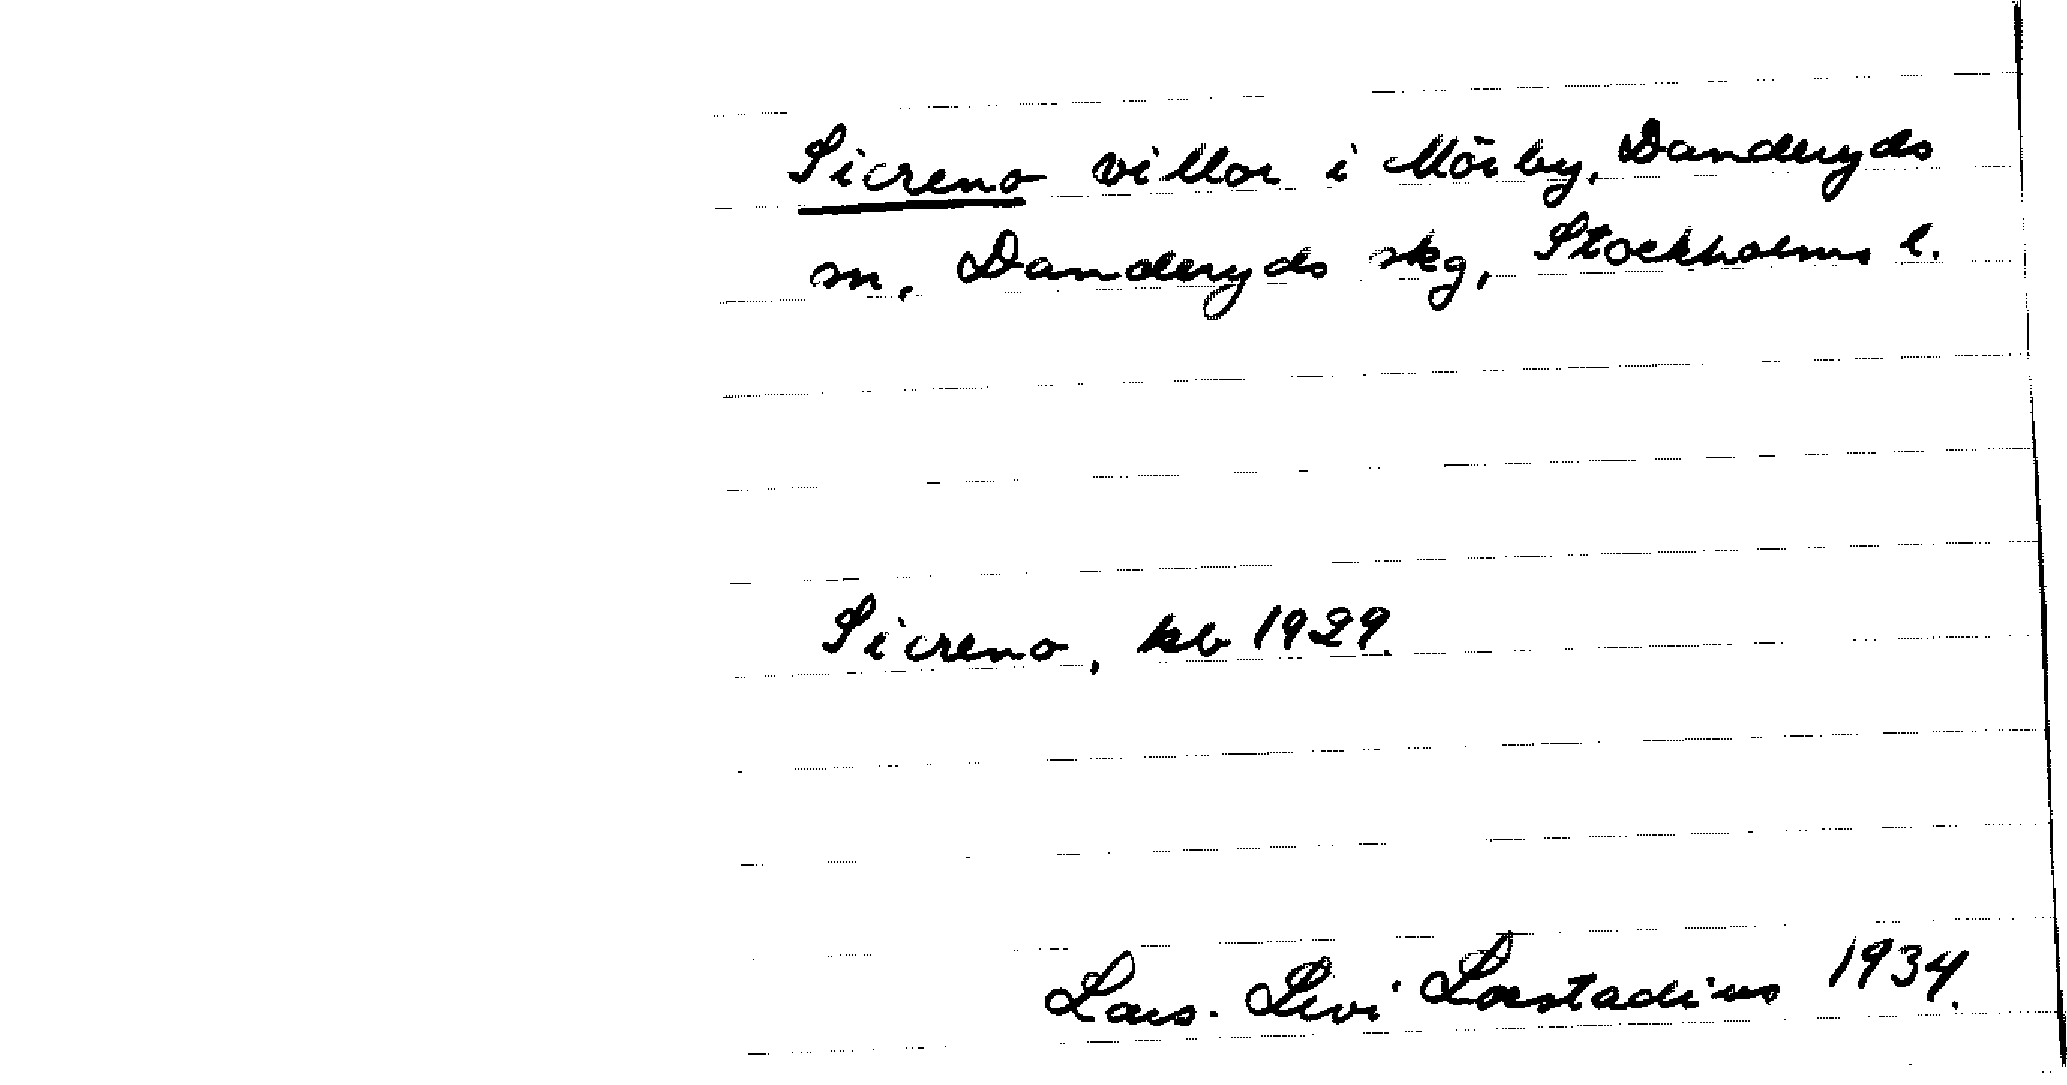 Sicreno villor i Mörby, Danderyds
sn, Danderyds skg, Stockholms l.
Sicreno, kb 1929.
Lars-Levi Læstadius 1934.